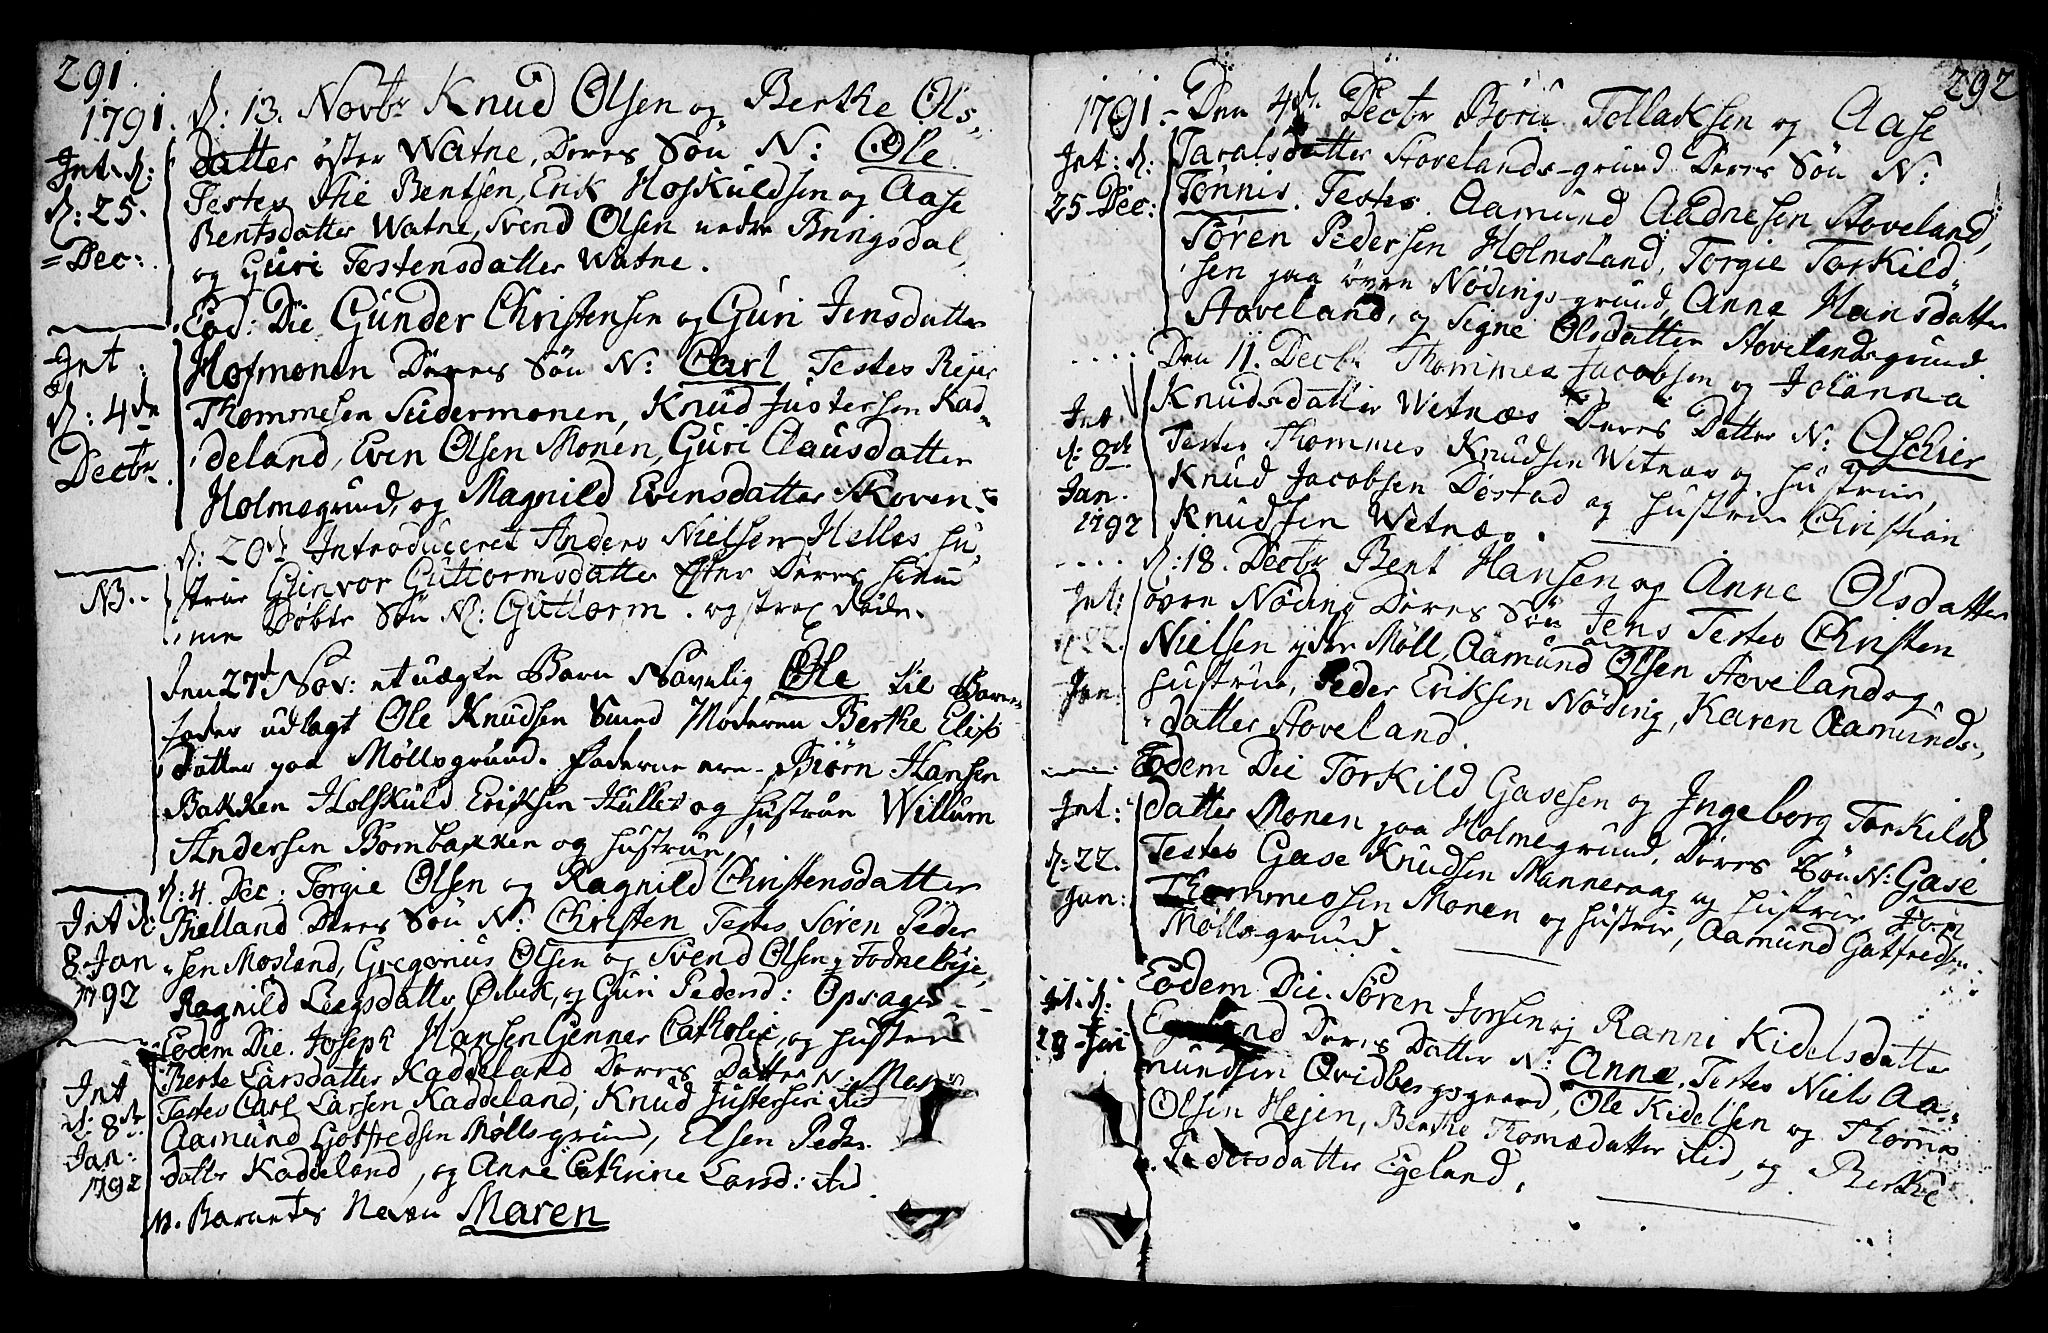 291.
1791.
d: 13. Novbr Knud Olsen og Berthe Ols,,
datter øster Watne, Deres Søn N: Ole
Testes Thie Bentsen, Erik Hoskuldsen og Aase
Bentsdatter Watne, Svend Olsen nedre Bringsdal,
og Guri Testensdatter Watne.
Int. d:
d: 25.
=Dec:
Eod: Die Gunder Christensen og Guri Jensdatter
Hofmonen Deres Søn N: Carl Testes Rejer
Thommesen Sudermonen, Knud Justersen Kad,,
deland, Even Olsen Monen, Guri Clausdatter
Holmegrund, og Magnild Evensdatter Skoven=
Int:
d: 4de
Decbr
d: 20de Introduceret Anders Nielsen Helles Hu,,
strue Gunvor Guttormsdatter Efter Deres hiem
me Døbte Søn N: Guttorm. og strax døde.
NB..
Den 27de Nov: et uægte Barn Navnlig Ole til Barne
fader udlagt Ole Knudsen Smed Moderen Berthe Elis
datter paa Mollsgrund. Fadderne ere- Biørn Hansen
Bakken Holskuld Eriksen Hulles og Hustrue Willum
Andersen Bombakken og Hustrue,
d: 4. Dec: Torgie Olsen og Ragnild Christensdatter
Thelland Deres Søn N: Christen Testes Søren Peder
sen Mosland, Gregorius Olsen og Svend Olsen, Fodnebye,
Ragnild Leegsdatter og Guri Pedersd: Opsager
Int d:
8. Jan
1792
Eodem Die. Joseph Hansen Genner Catholic, og Hustru
Berte Larsdatter Kaddeland Deres Datter N: Mar
Testes Carl Larsen Kaddeland, Knud Justersen ibid
Aamund Gotfredsen Mollsgrund, Elsen Peders
datter Kaddeland, og Anne Cathrine Larsd: ibid
N. Barnets Navn Maren
Int
d: 8de
Jan:
1792
292
1791 - Den 4de Decbr Børu Tellaksen og Aase
Taralsdatter Stovelands-grund Deres Søn N:
Tønnis. Testes. Aamund Aadnesen Stoveland,
Søren Pedersen Holmsland, Torgie Torkild,,
sen paa øvre Nødings-grund, Anne Hansdatter
Stoveland, og Signe Olsdatter Stovelandsgrund
Int: d:
25 Dec:
Den 11. Decbr Thommes Jacobsen og Johanna
Knudsdatter Witnæs Deres Datter N: Aschier
Testes Thommes Knudsen Witnæs og Hustrue,
Knud Jacobsen Dostad og Hustrue Christian
Knudsen Witnæs.
Int.
d: 8de
Jan.
1792
d: 18. Decbr Bent Hansen og Anne Olsdatter
øvre Nøding Deres Søn Jens Testes Christen
Nielsen yder Møll, Aamund Olsen Stoveland og
Hustrue, Peder Eriksen Nøding, Karen Aamunds,,
datter Stoveland.
Int:
d: 22.
Jan:
Eodem Die Torkild Gasesen og Ingeborg Torkilds
datter Monen paa Holmegrund, Deres Søn N: Gase
Testes Gase Knudsen Mannevaag og Hustrue Jørn
Thommesen Monen og Hustrue, Aamund Gotfredsen
Mollsgrund.
Int:
d: 22.
Jan:
Eodem Die. Søren Jorsen og Ranni Kidelsdatter
Egeland Deres Datter N: Anne. Testes Niels Aa,,
mundsen Qvidbergsgaard, Ole Kidelsen og Thomas
Olsen Hejen, Berthe Thomædatter ibid, og Berthe
Pedersdatter Egeland.
Int. d:
29 Jan